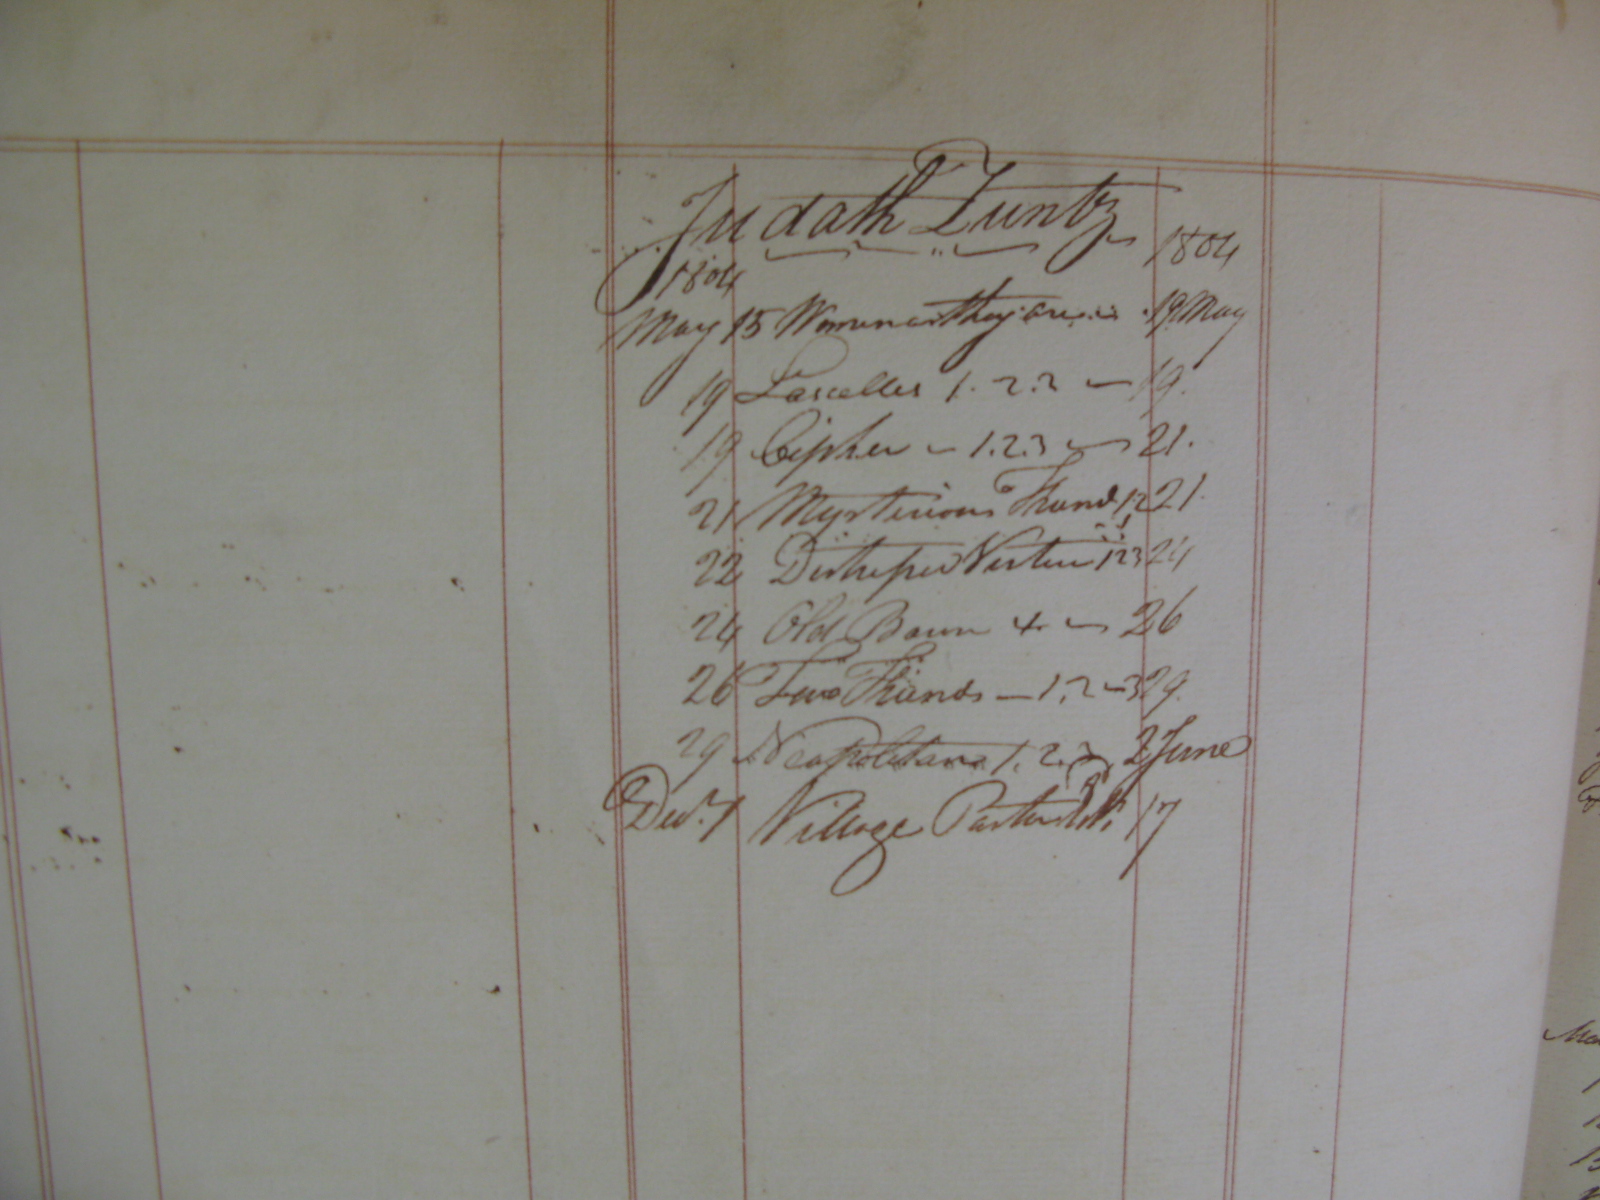 Judath Zuntz
1804 1804
May 15 Women as they are 19 May
19 Lascelles 1. 2. 3 19.
19 Cipher 1. 2. 3 21.
21 Mysterious Friend 1. 2 21.
22 Distressed Virtue 1 2 3 24
24 Old 4. 26
26 Two Friends 1. 2 3 29.
29 Neapolitan 1. 2. 3 2 June
Decr. 1 Village Pastor 17